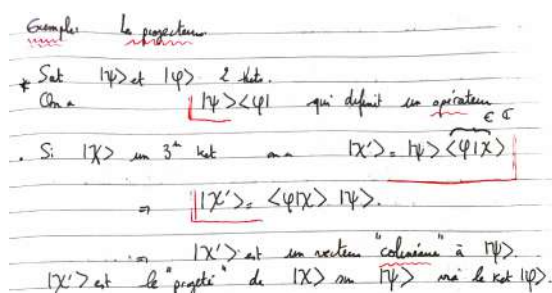 Exemple: Le projecteur.
* Soit |ψ> et |φ> 2 kets.
On a |ψ><φ| qui definit un opérateur
∈ ℂ
. Si |χ> un 3e ket on a |χ'> = |ψ> <φ|χ>
⇒ |χ'> = <φ|χ> |ψ>.
⇒ |χ'> est un vecteur "colinéaire" à |ψ>
|χ'> est le "projeté" de |χ> sur |ψ> via le ket |φ>.